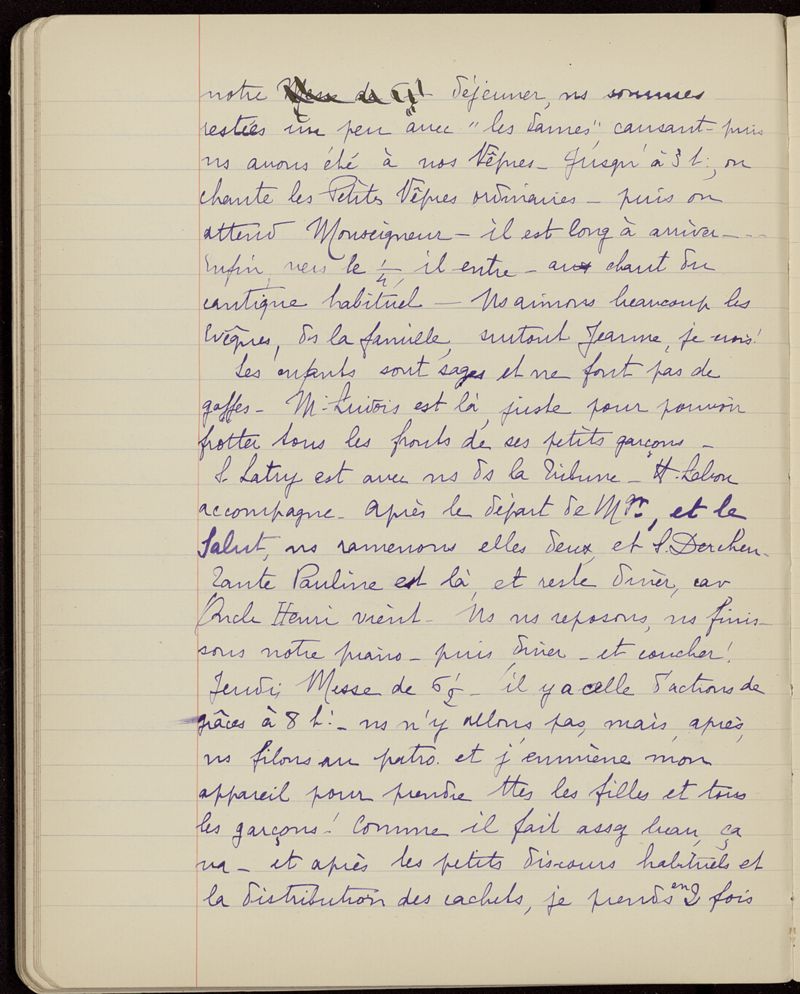 notre déjeuner, ns sommes
restées un peu avec "les dames", causant - puis
ns avons été à nos Vêpres - Jusqu'à 3 h:, on
chante les Petites Vêpres ordinaires - puis on
attend Monseigneur - il est long à arriver - - -
Enfin, vers le 1/4, il entre - au chant du
cantique habituel - Ns aimons beaucoup les
Evêques, ds la famille, surtout Jeanne, je crois!
Les enfants sont sages et ne font pas de
gaffes - Mr. est là, juste pour pouvoir
frotter tous les fronts de ses petits garçons -
S. Latry est avec ns ds la Tribune - H. Lebon
accompagne - Après le départ de Mgr, et le
Salut, ns ramenons elles deux, et S.
Tante Pauline est là, et reste dîner, car
Oncle Henri vient - Ns ns reposons, ns finis-
sons notre piano - puis dîner - et coucher!
Jeudi, Messe de 6 1/2 - il y a celle d'actions de
grâces à 8 h: - ns n'y allons pas, mais, après,
ns filons au patro. et j'emmène mon
appareil pour prendre ttes les filles et tous
les garçons! Comme il fait assez beau, ça
va - et après les petits discours habituels et
la distribution des cachets, je prends en 2 fois